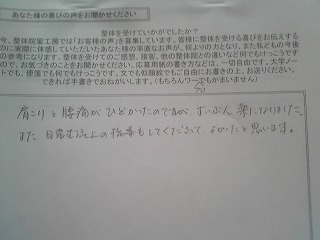 あなた様の喜びの声をお聞かせください
整体を受けていかがでしたか?
今、整体院蜜工房では「お客様の声」を募集しています。皆様に整体を受ける喜びをお伝えする
のに実際に体感していただいたあなた様の率直なお声が、何よりの力となり、また私どもの今後
の参考になります。整体を受けてのご感想、接客、他の整体院との違いなど何でもけっこうです
ので、お気づきの点をお聞かせください。応募用紙の書き方などは、一切自由です。大学ノー
トでも、便箋でも何でもけっこうです。文でも似顔絵でもご自由にお書きの上、お送りください。
できれば手書きでおねがいします。(もちろんワープロでもかまいません)
肩こりと腰痛がひどかったのですが ずいぶん 楽になりました。
また 日常生活上の指導もしてくださって、よかったと思います。